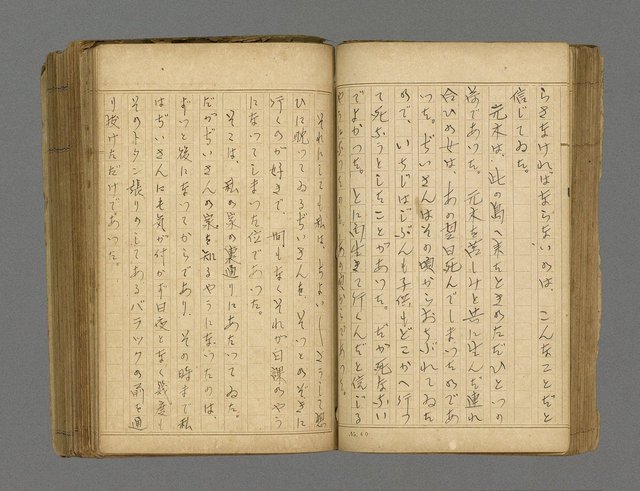 らさなければならないのは、こんなことだと
信じてゐた。
元木は、此の島へ来たときのたゞひとつの
荷であつた。元木を苦しみと共に生んだ連れ
合ひの女は、あの翌日死んでしまつたのであ
つた。ぢいさんはその頃からおちぶれてゐた
ので、いちじはじぶんも子供もどこかへ行つ
て死なうとしたことがあつた。だが死なない
でよかつた。とに角生きて行くんだと信じる
それにしても私は、ちよい〳〵さうして
ひに耽つてゐるぢいさんを、そつとのぞきに
行くのが好きで、間もなくそれが日課のやう
になつてしまつた位であつた。
そこは、私の家の裏通りにあたいてゐた。
だがぢいさんの家を知るやうになつたのは、
ずつと後になつてからであり、その時まで私
はぢいさんにも気が付かず日夜となく幾度も
そのトタン張りのしてあるバラツクの前を通
り抜けただけであつた。
No. 60